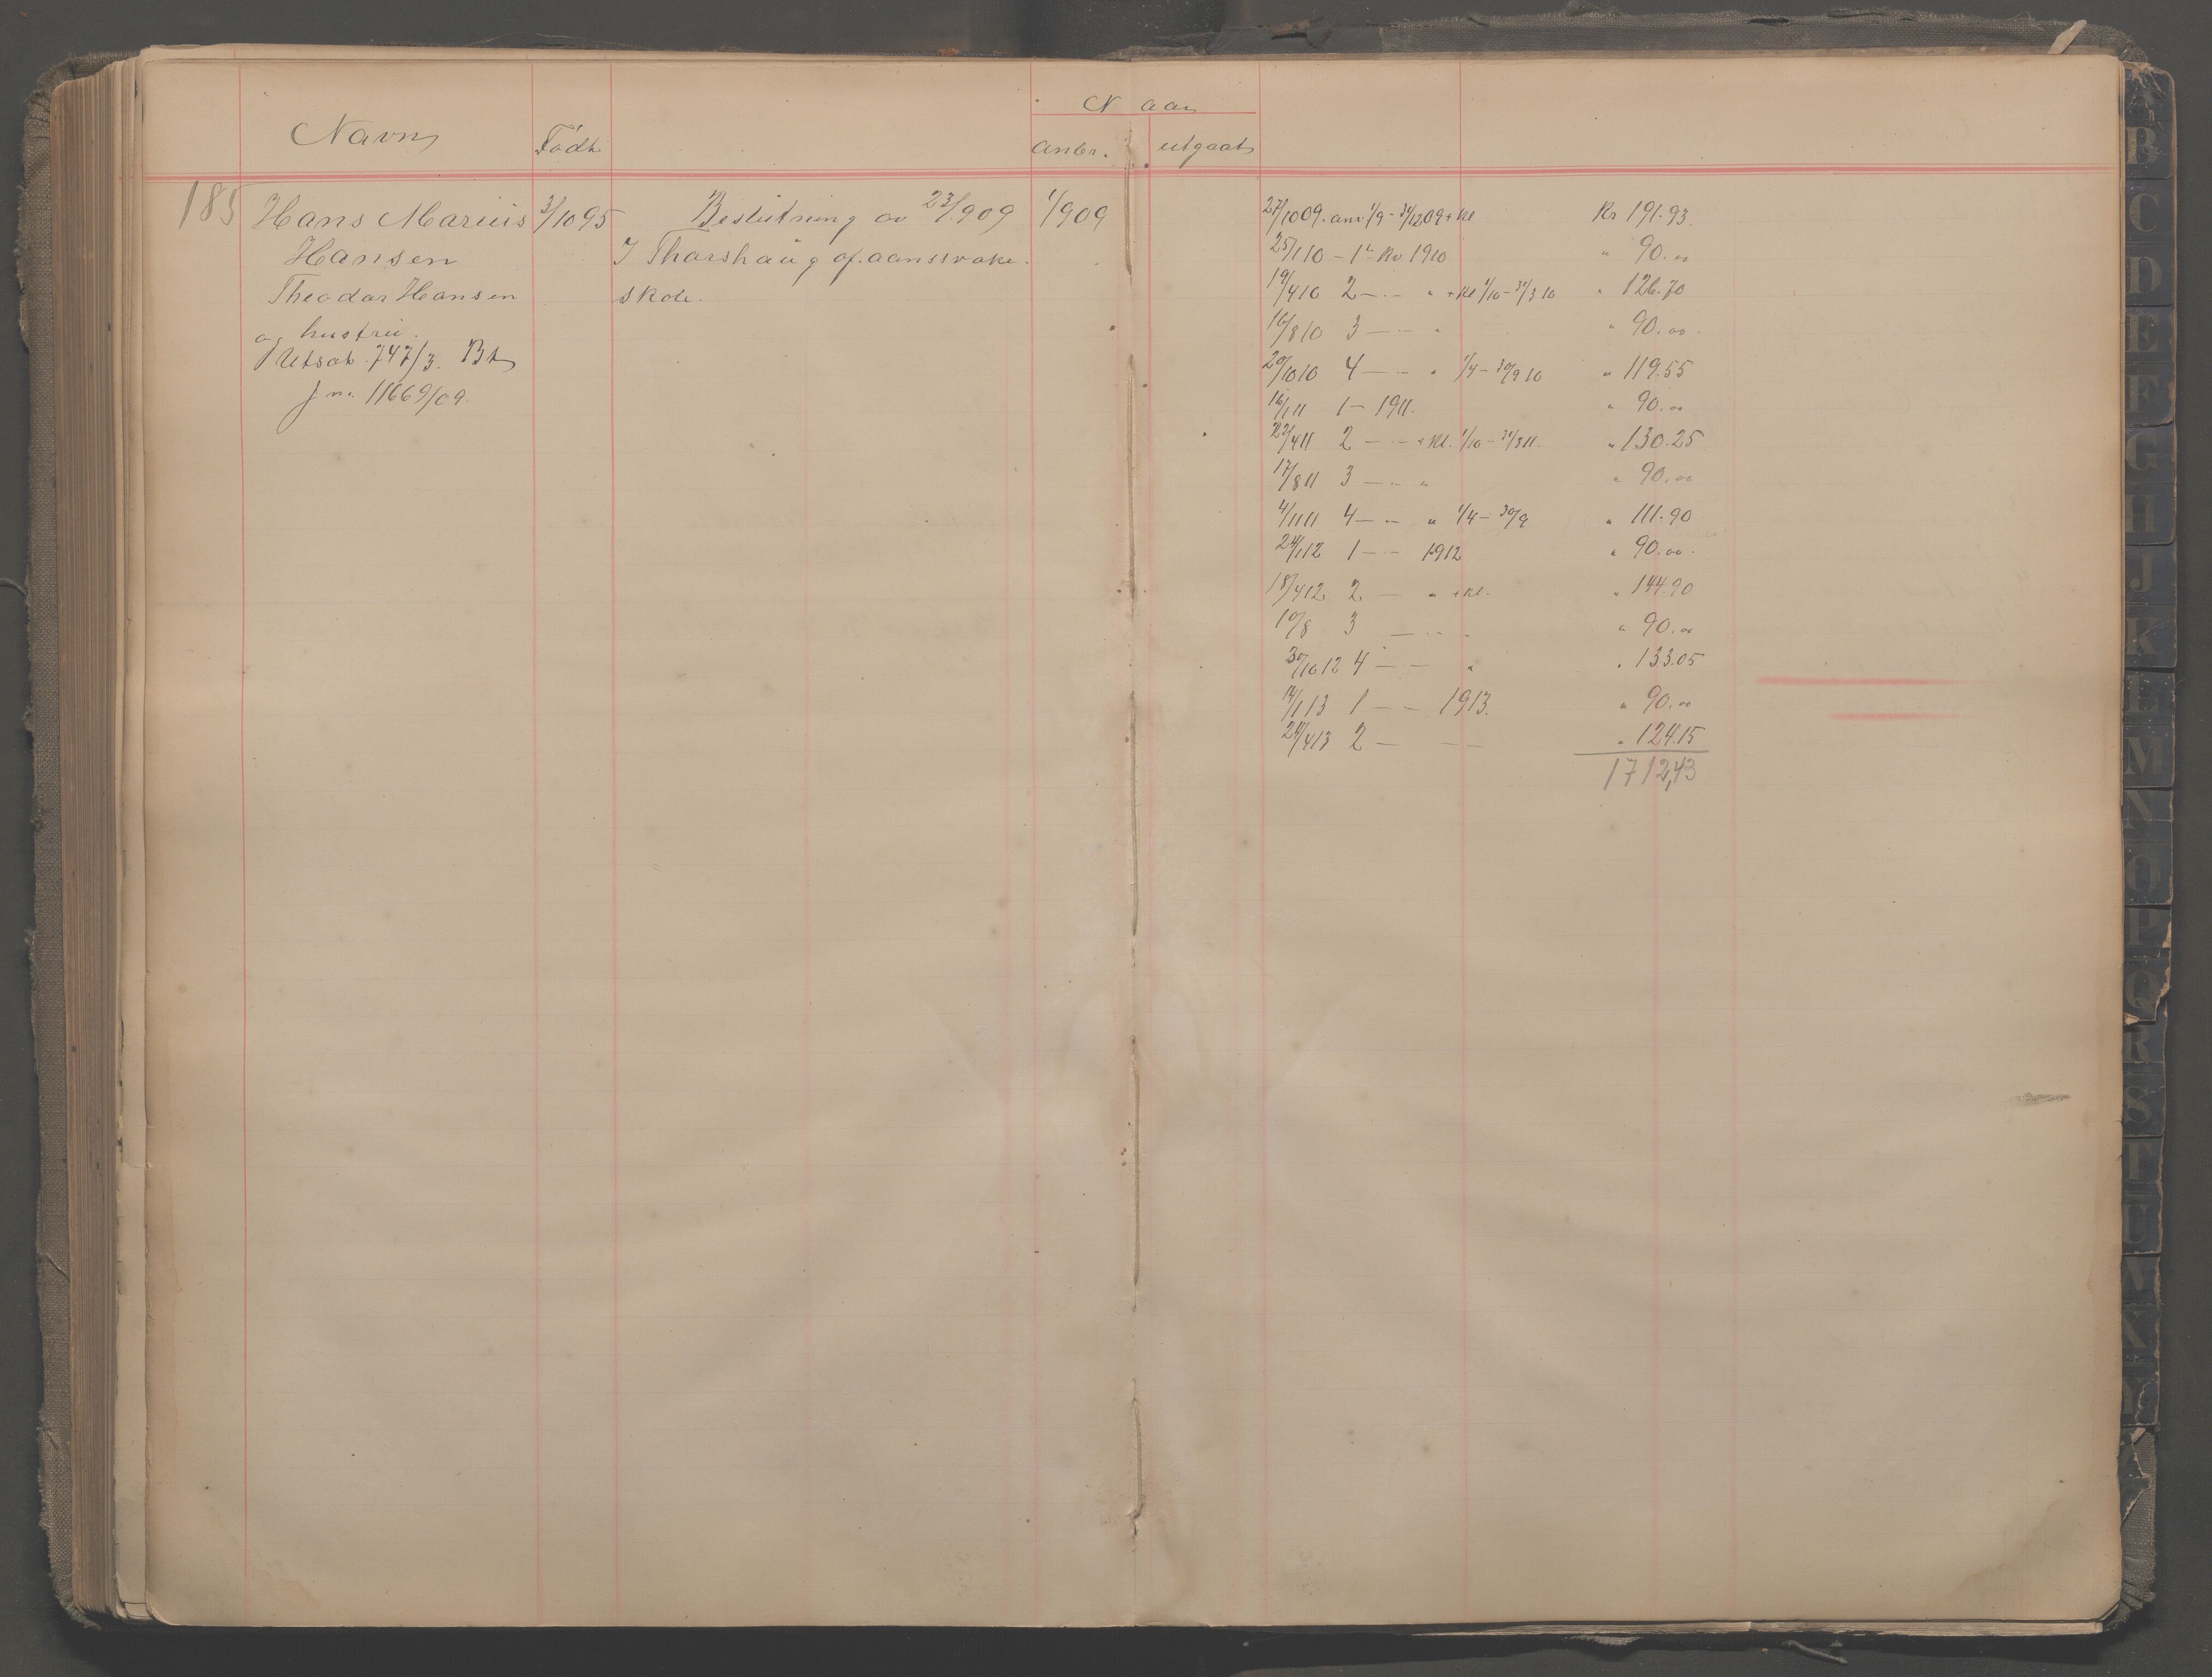 Naar
Navn Födt anbr. utgaat
185 Hans Marius 3/10 95 Beslutning av 23/9 09 1/9 09
Hansen I Thorshaug f. aandssvake
Theodor Hansen skole.
og hustru.
Utsat 747/3.
J nr. 11669/09.
27/10 09. anv 1/9 - 31/12 09 + Kl Kr 191.93.
25/1 10 - 1ste Kv 1910 " 90.00
19/4 10 2 — - — " + Kl 1/10 - 31/3 10 " 126.70
16/8 10 3 — - — " " 90.00.
20/10 10 4 — - — " 1/4 - 30/9 10 " 119.55
16/1 11 1 — 1911. " 90.00
22/4 11 2 — - — + Kl. 1/10 - 31/3 11. " 130.25
17/8 11 3 — - — " " 90.00
4/11 11 4 — - — " 1/4 - 30/9 " 111.90
24/1 12 1 — - — 1912 " 90.00.
18/4 12 2 — " + Kl. " 144.90
10/8 3 — - — " " 90.00
30/10 12 4 — - — " " 133.05
14/1 13 1 — - — 1913. " 90.00
24/4 13 2 — — " 124.15
1712,43
B
C
D
E
F
G
H
J
K
L
M
N
O
P
Q
R
S
T
U
V
X
Y